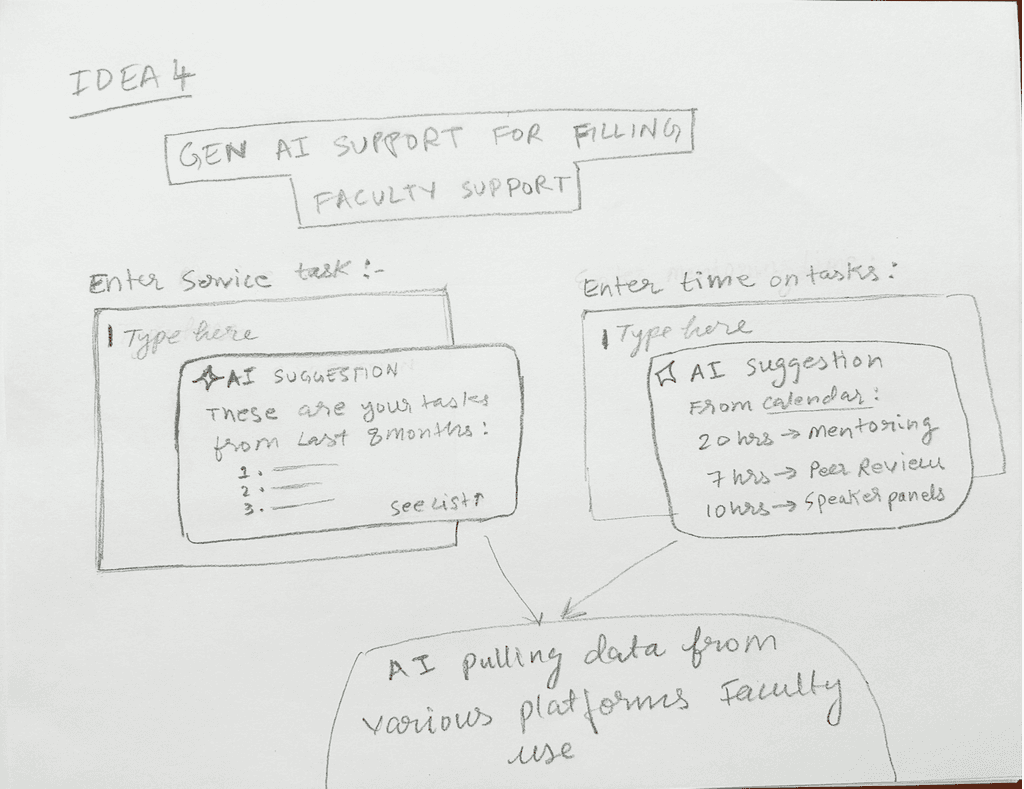 IDEA 4
GEN AI SUPPORT FOR FILLING
FACULTY SUPPORT
Enter Service task :-
Type here
AI SUGGESTION
These are your tasks
from Last 8 months :
1.
2.
3.
See List ↑
Enter time on tasks :
Type here
AI Suggestion
From calendar :
20 hrs → Mentoring
7 hrs → Peer Review
10 hrs → Speaker panels
AI pulling data from
various platforms Faculty
use